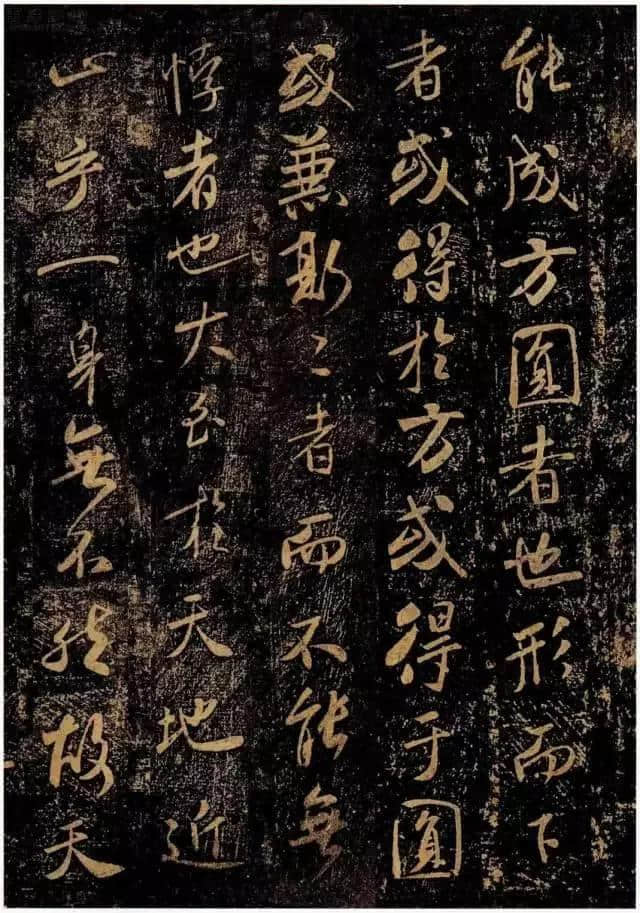 能成方圓者也形而下
者或得於方或得于圓
或兼斯二者而不能無
悖者也大至於天地近
止乎一身無不然故天